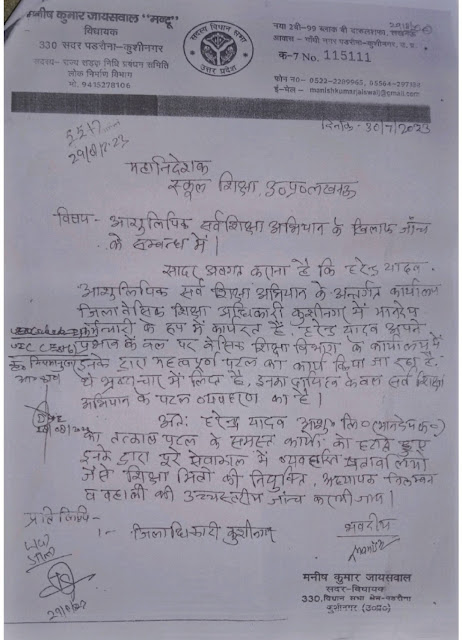 मनीष कुमार जायसवाल "मन्टू"
विधायक
330 सदर पडरौना-कुशीनगर
सदस्य- राज्य सड़क निधि प्रबंधन समिति
लोक निर्माण विभाग
मो. 9415278106
सदस्य विधान सभा
उत्तर प्रदेश
आवास - गाँधी नगर पडरौना-कुशीनगर, उ. प्र.
क-7 No. 115111
ई-मेल - manishkumarjaiswal@gmail.com
दिनांक- 30/7/2023
महानिदेशक
स्कूल शिक्षा, उ०प्र० लखनऊ
विषय- आशुलिपिक सर्व शिक्षा अभियान के खिलाफ जाँच
के सम्बन्ध में।
सादर अवगत कराना है कि हरेन्द्र यादव
आशुलिपिक सर्व शिक्षा अभियान के अन्तर्गत कार्यालय
जिला बेसिक शिक्षा अधिकारी कुशीनगर में मानदेय
कर्मचारी के रूप में कार्यरत है, हरेन्द्र यादव अपने
प्रभाव के बल पर बेसिक शिक्षा विभाग के कार्यालय में
इनके द्वारा महत्वपूर्ण पटल का कार्य किया जा रहा है
ये भ्रष्टाचार में लिप्त है, इनका दायित्व केवल सर्व शिक्षा
अभियान के पटल का है।
अतः हरेन्द्र यादव आशु० लि० (मानदेय क०)
का तत्काल पटल के समस्त कार्यों को हटाते हुए
इनके द्वारा पूरे सेवाकाल में
जैसे शिक्षा मित्रों की नियुक्ति, अध्यापक निलम्बन
व बहाली की उच्चस्तरीय जाँच करायी जाय।
प्रतिलिपि-
1- जिलाधिकारी, कुशीनगर
भवदीय
मनीष कुमार जायसवाल
सदर-विधायक
330, विधान सभा क्षेत्र-पडरौना
कुशीनगर (उ०प्र०)